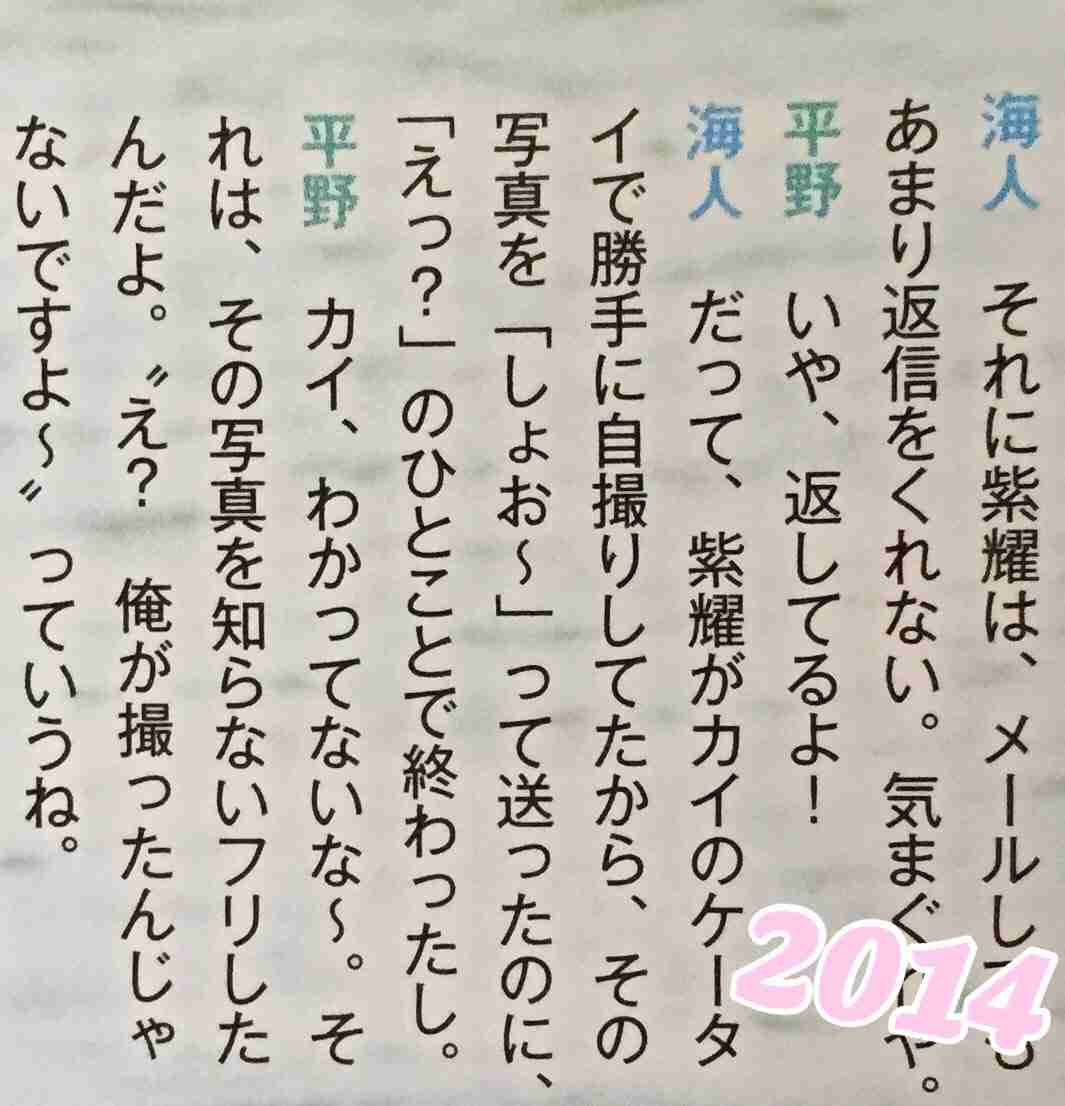 海人　それに紫耀は、メールしても
あまり返信をくれない。気まぐや。
平野　いや、返してるよ！
海人　だって、紫耀がカイのケータ
イで勝手に自撮りしてたから、その
写真を「しょお〜」って送ったのに、
「えっ？」のひとことで終わったし。
平野　カイ、わかってないな〜。そ
れは、その写真を知らないフリした
んだよ。〝え？　俺が撮ったんじゃ
ないですよ〜〟っていうね。
2014